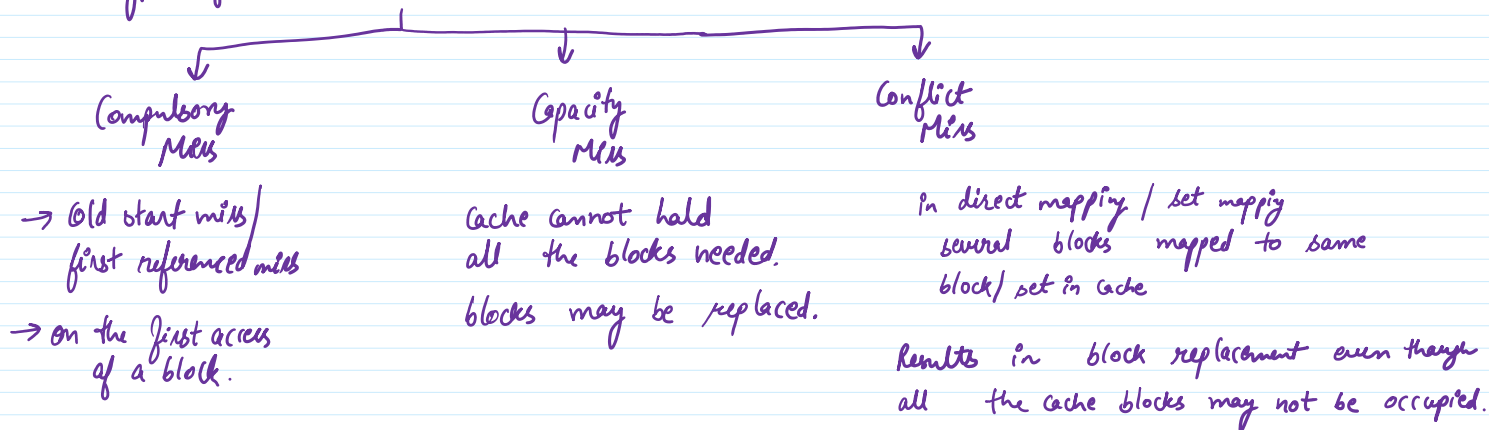 Compulsory
Miss
→ Old start miss/
first referenced miss
→ on the first access
of a block.
Capacity
Miss
Cache cannot hold
all the blocks needed.
blocks may be replaced.
Conflict
Miss
in direct mapping / set mappig
several blocks mapped to same
block/ set in cache
Results in block replacement even though
all the cache blocks may not be occupied.